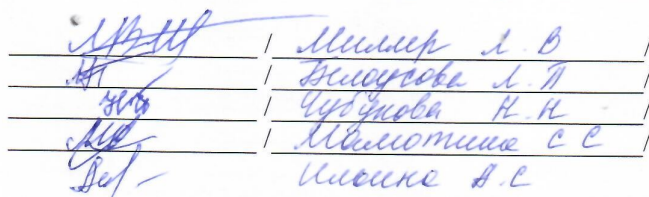 / Миллер Л. В /
/ Белоусова Л. П /
/ Чубукова Н. Н /
/ Мамотина С С /
Илоина А. С